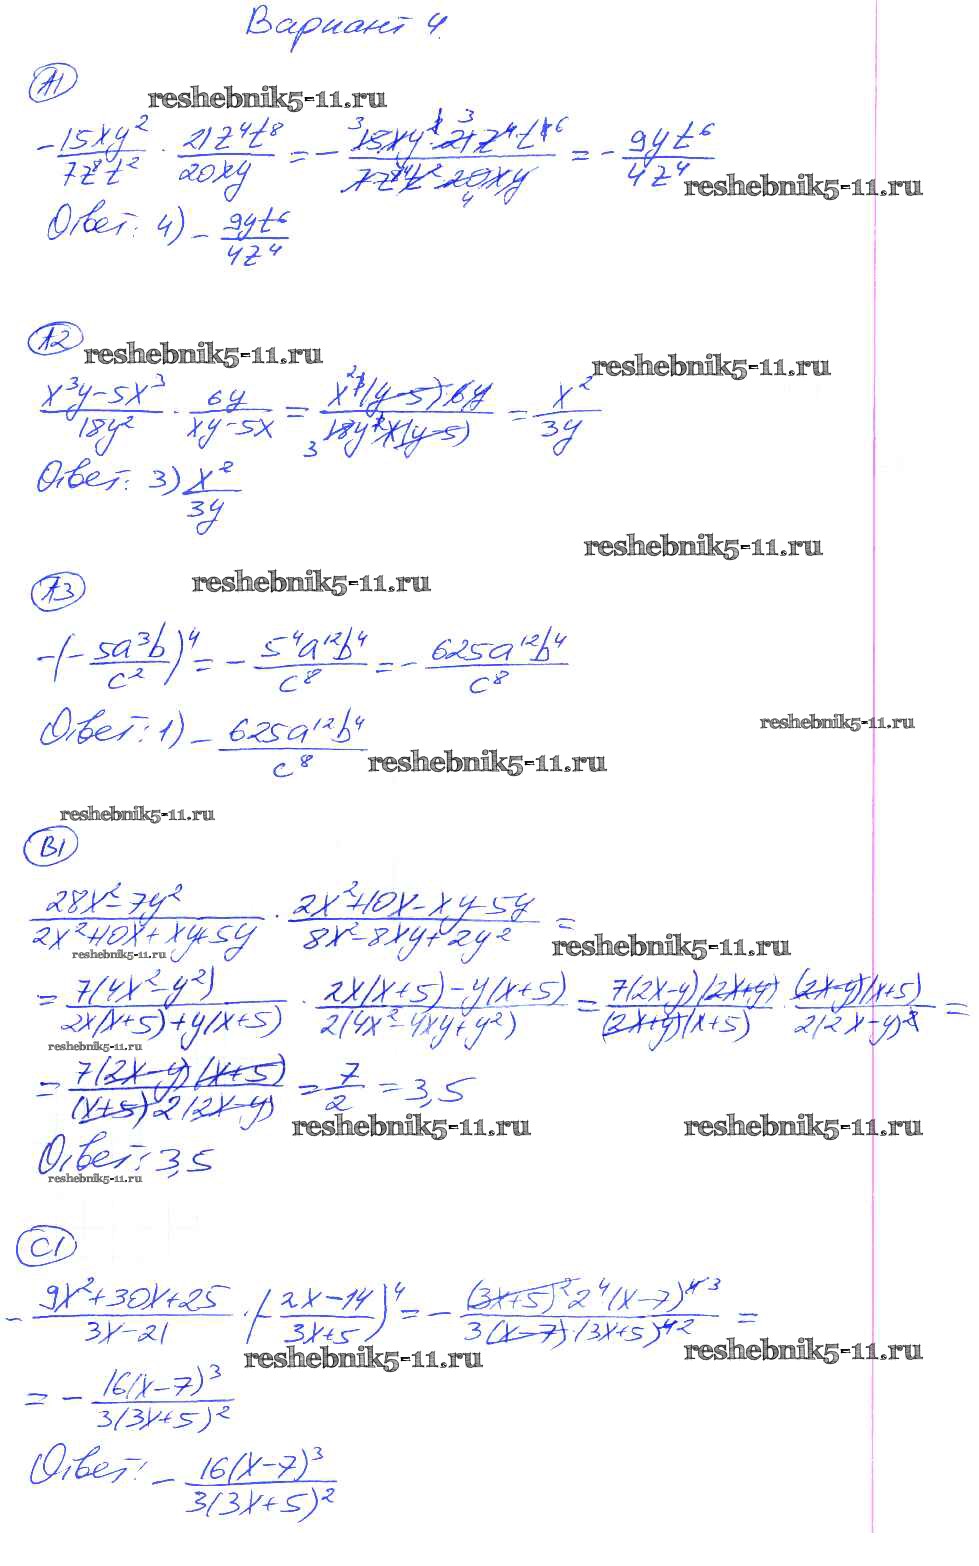 Вариант 4.
A1
reshebnik5-11.ru
-15xy²/7z⁸t² · 21z⁴t⁸/20xy = - 15xy² · 21z⁴ · t⁸/7z⁸t² · 20xy = - 9yt⁶/4z⁴
reshebnik5-11.ru
Ответ: 4) - 9yt⁶/4z⁴
A2
reshebnik5-11.ru
reshebnik5-11.ru
x³y-5x³/18y² · 6y/xy-5x = x³(y-5)·6y/18y²x(y-5) = x²/3y
Ответ: 3) x²/3y
reshebnik5-11.ru
A3
reshebnik5-11.ru
-(-5a³b/c²)⁴ = - 5⁴a¹²b⁴/c⁸ = - 625a¹²b⁴/c⁸
Ответ: 1) - 625a¹²b⁴/c⁸
reshebnik5-11.ru
reshebnik5-11.ru
reshebnik5-11.ru
B1
28x²-7y²/2x²+10x+xy+5y · 2x²+10x-xy-5y/8x²-8xy+2y² =
reshebnik5-11.ru
reshebnik5-11.ru
= 7(4x²-y²)/2x(x+5)+y(x+5) · 2x(x+5)-y(x+5)/2(4x²-4xy+y²) = 7(2x-y)(2x+y)/(2x+y)(x+5) · (2x-y)(x+5)/2(2x-y)² =
reshebnik5-11.ru
= 7(2x-y)(x+5)/(x+5)2(2x-y) = 7/2 = 3,5
reshebnik5-11.ru
reshebnik5-11.ru
Ответ: 3,5
reshebnik5-11.ru
C1
- 9x²+30x+25/3x-21 · (-2x-14/3x+5)⁴ = - (3x+5)²2⁴(x-7)⁴³/3(x-7)(3x+5)⁴² =
reshebnik5-11.ru
reshebnik5-11.ru
= - 16(x-7)³/3(3x+5)²
Ответ: - 16(x-7)³/3(3x+5)²